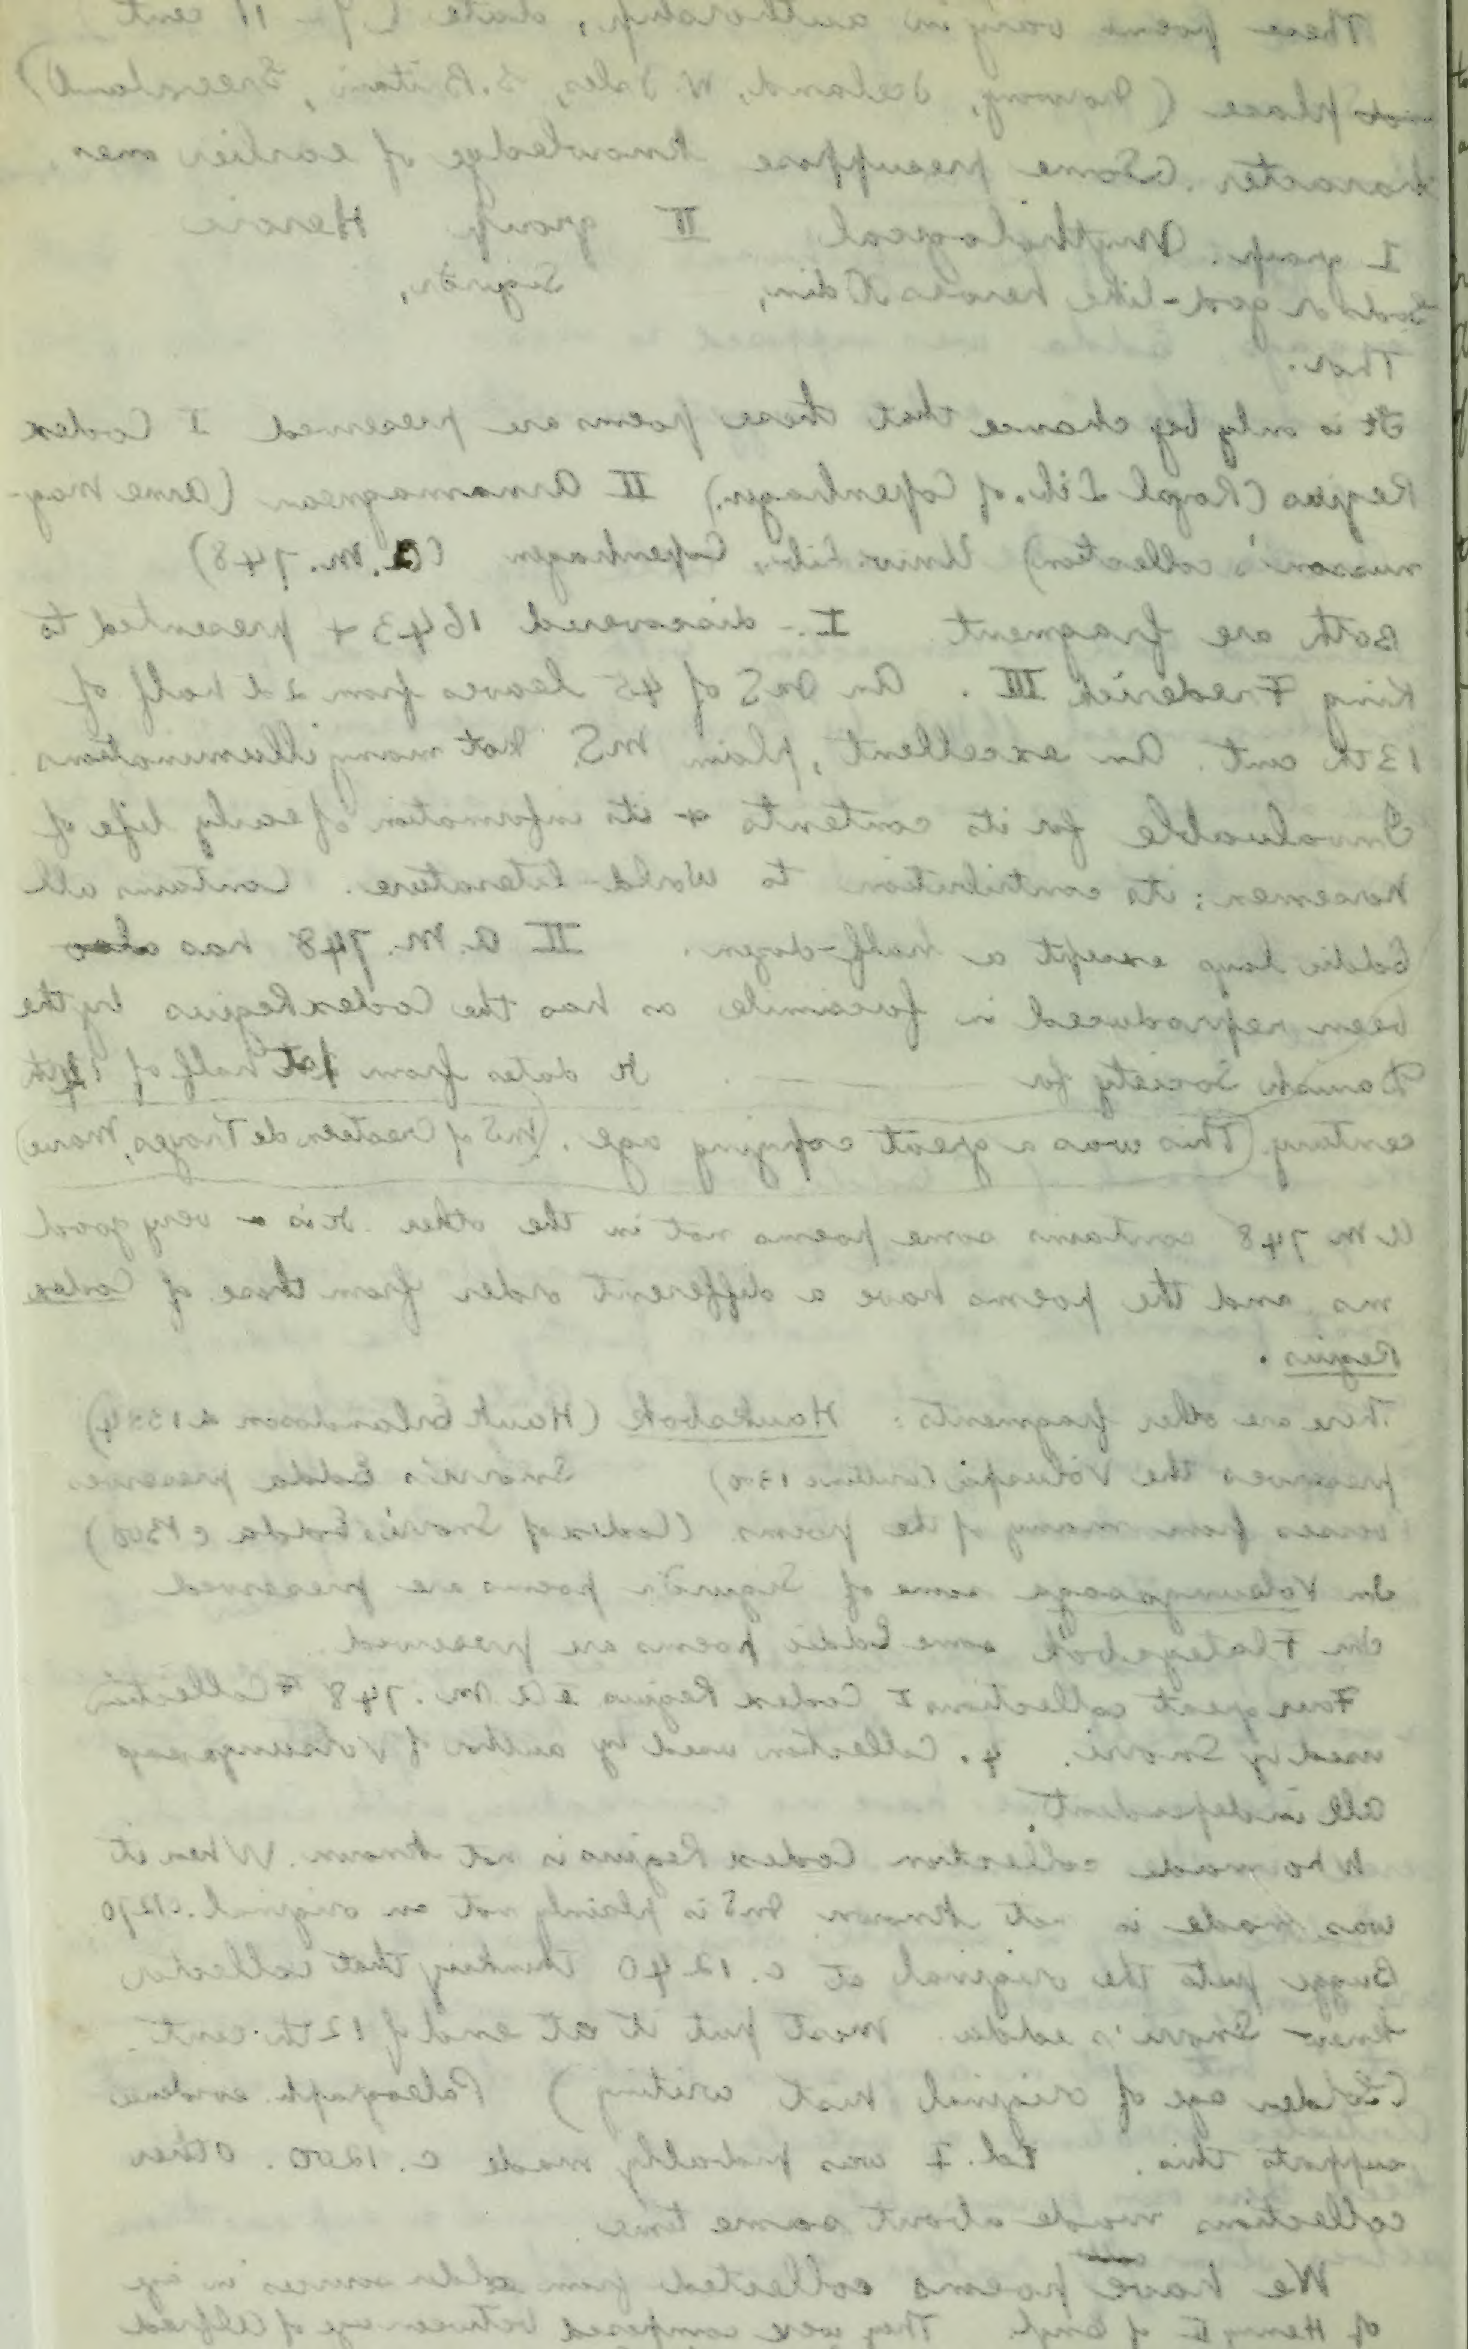 These poems vary in authorship, date (9 - 11 cent
place (Norway, Iceland, W. Isles, S. Britain, Greenland)
character. Some presuppose knowledge of earlier ones.
I group. Mythological II group Heroic
Gods or god-like heroes Odin, Sigurðr,
Thor.
It is only by chance that these poems are preserved I Codex
Regius (Royal Lib. of Copenhagen.) II Arnamagnean (Arne Mag-
nusson's collection) Univ. Lib., Copenhagen (A.M. 748)
Both are fragment I - discovered 1643 + presented to
King Frederick III. An MS of 45 leaves from 2d half of
13th cent. An excellent, plain MS. Not many illuminations
Invaluable for its contents + its information of early life of
Norsemen; its contribution to world-literature. Contains all
Eddic lays except a half-dozen. II A.M. 748 has also
been reproduced in facsimile as has the Codex Regius by the
Danish Society for It dates from 1st half of 14th
century. (This was a great copying age. (MS of Crestien de Troyes, Marie)
AM 748 contains some poems not in the other. It is a very good
ms and the poems have a different order from those of Codex
Regius.
There are other fragments: Hauksbok (Hauk Erlandsson d 1334)
preserves the Völuspá (written 1300) Snorri's Edda preserves
verses from many of the poems. (Codex of Snorri's Edda c 1300)
In Volsungasaga some of Sigurðr poems are preserved
In Flateyabok some Eddic poems are preserved.
Four great collections I Codex Regius 2 A.M. 748 3 Collection
used by Snorri. 4. Collection used by author of Volsungasag
all independent.
Who made collection Codex Regius is not known. When it
was made is not known MS is plainly not an original. c1270
Bugge puts the original at c. 1240 thinking that collector
knew Snorri's edda. Most put it at end of 12th cent.
(Golden age of original hist writing) Paleograph. evidence
supports this. Ed. I was probably made c. 1200. Other
collections made about same time
We have poems collected from older sources in age
of Henry II of Engl. They were composed between age of Alfred